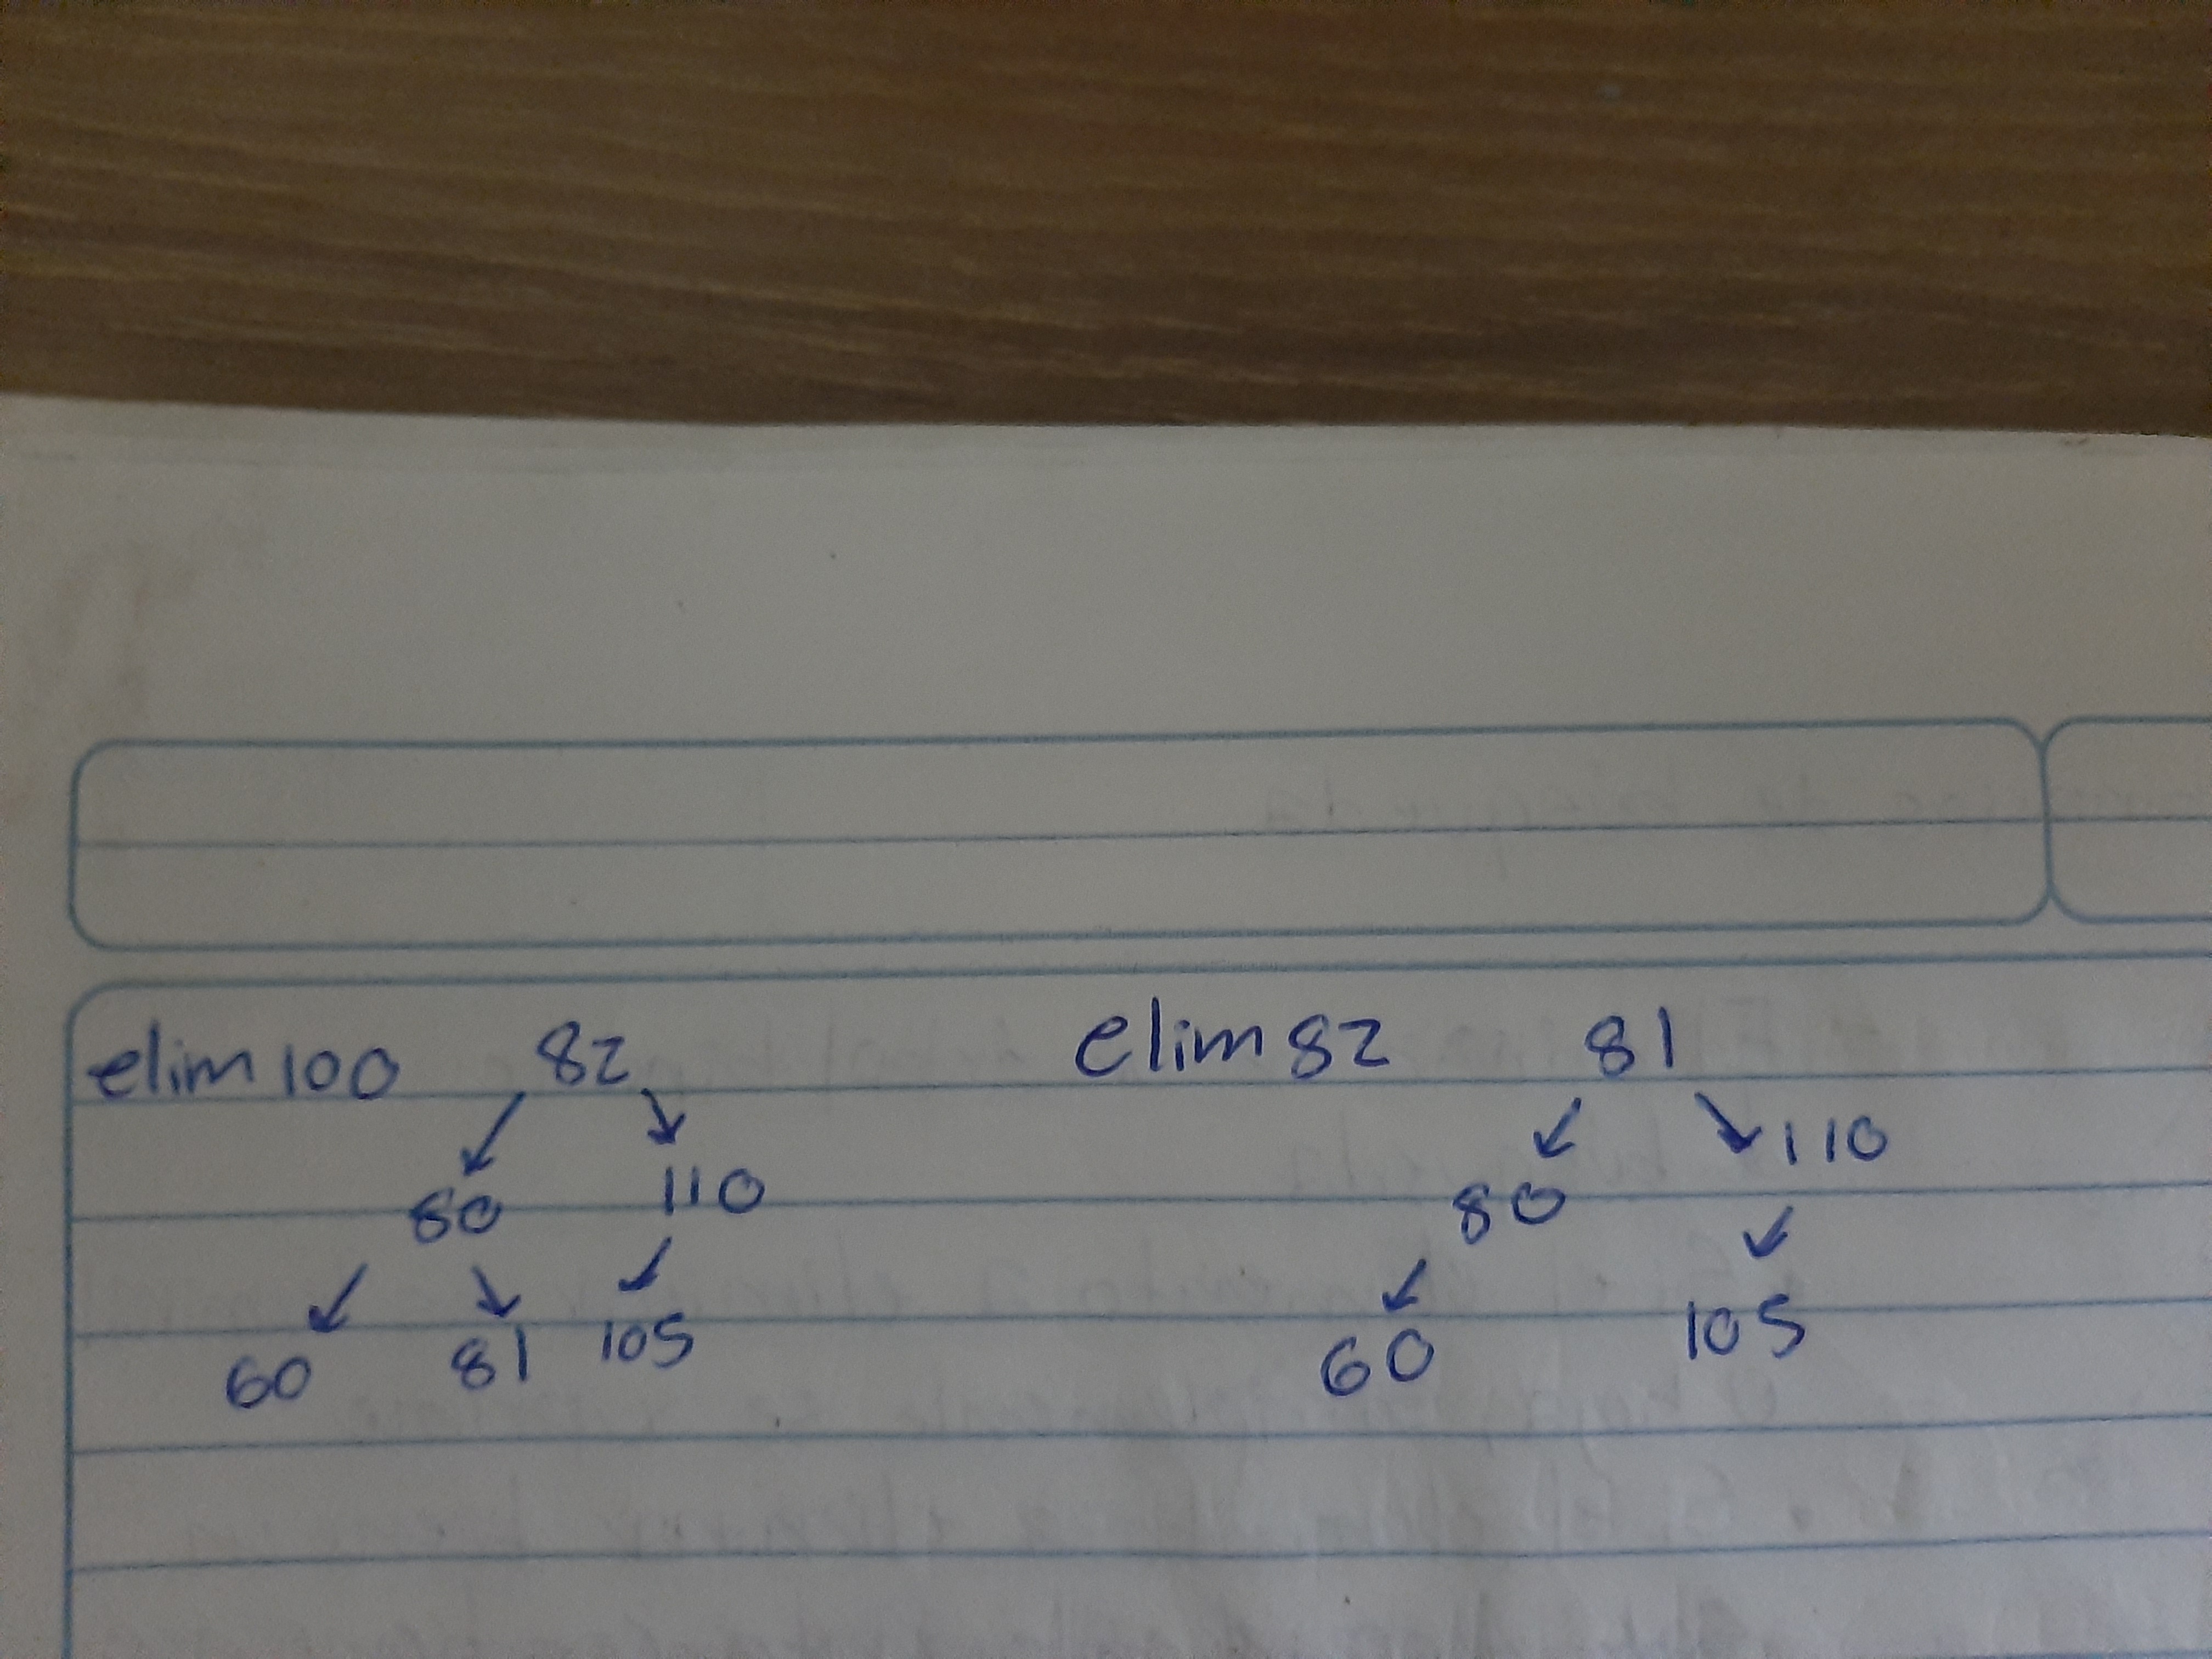 elim 100 82
80 110
60 81 105
elim 82 81
110
80
105
60